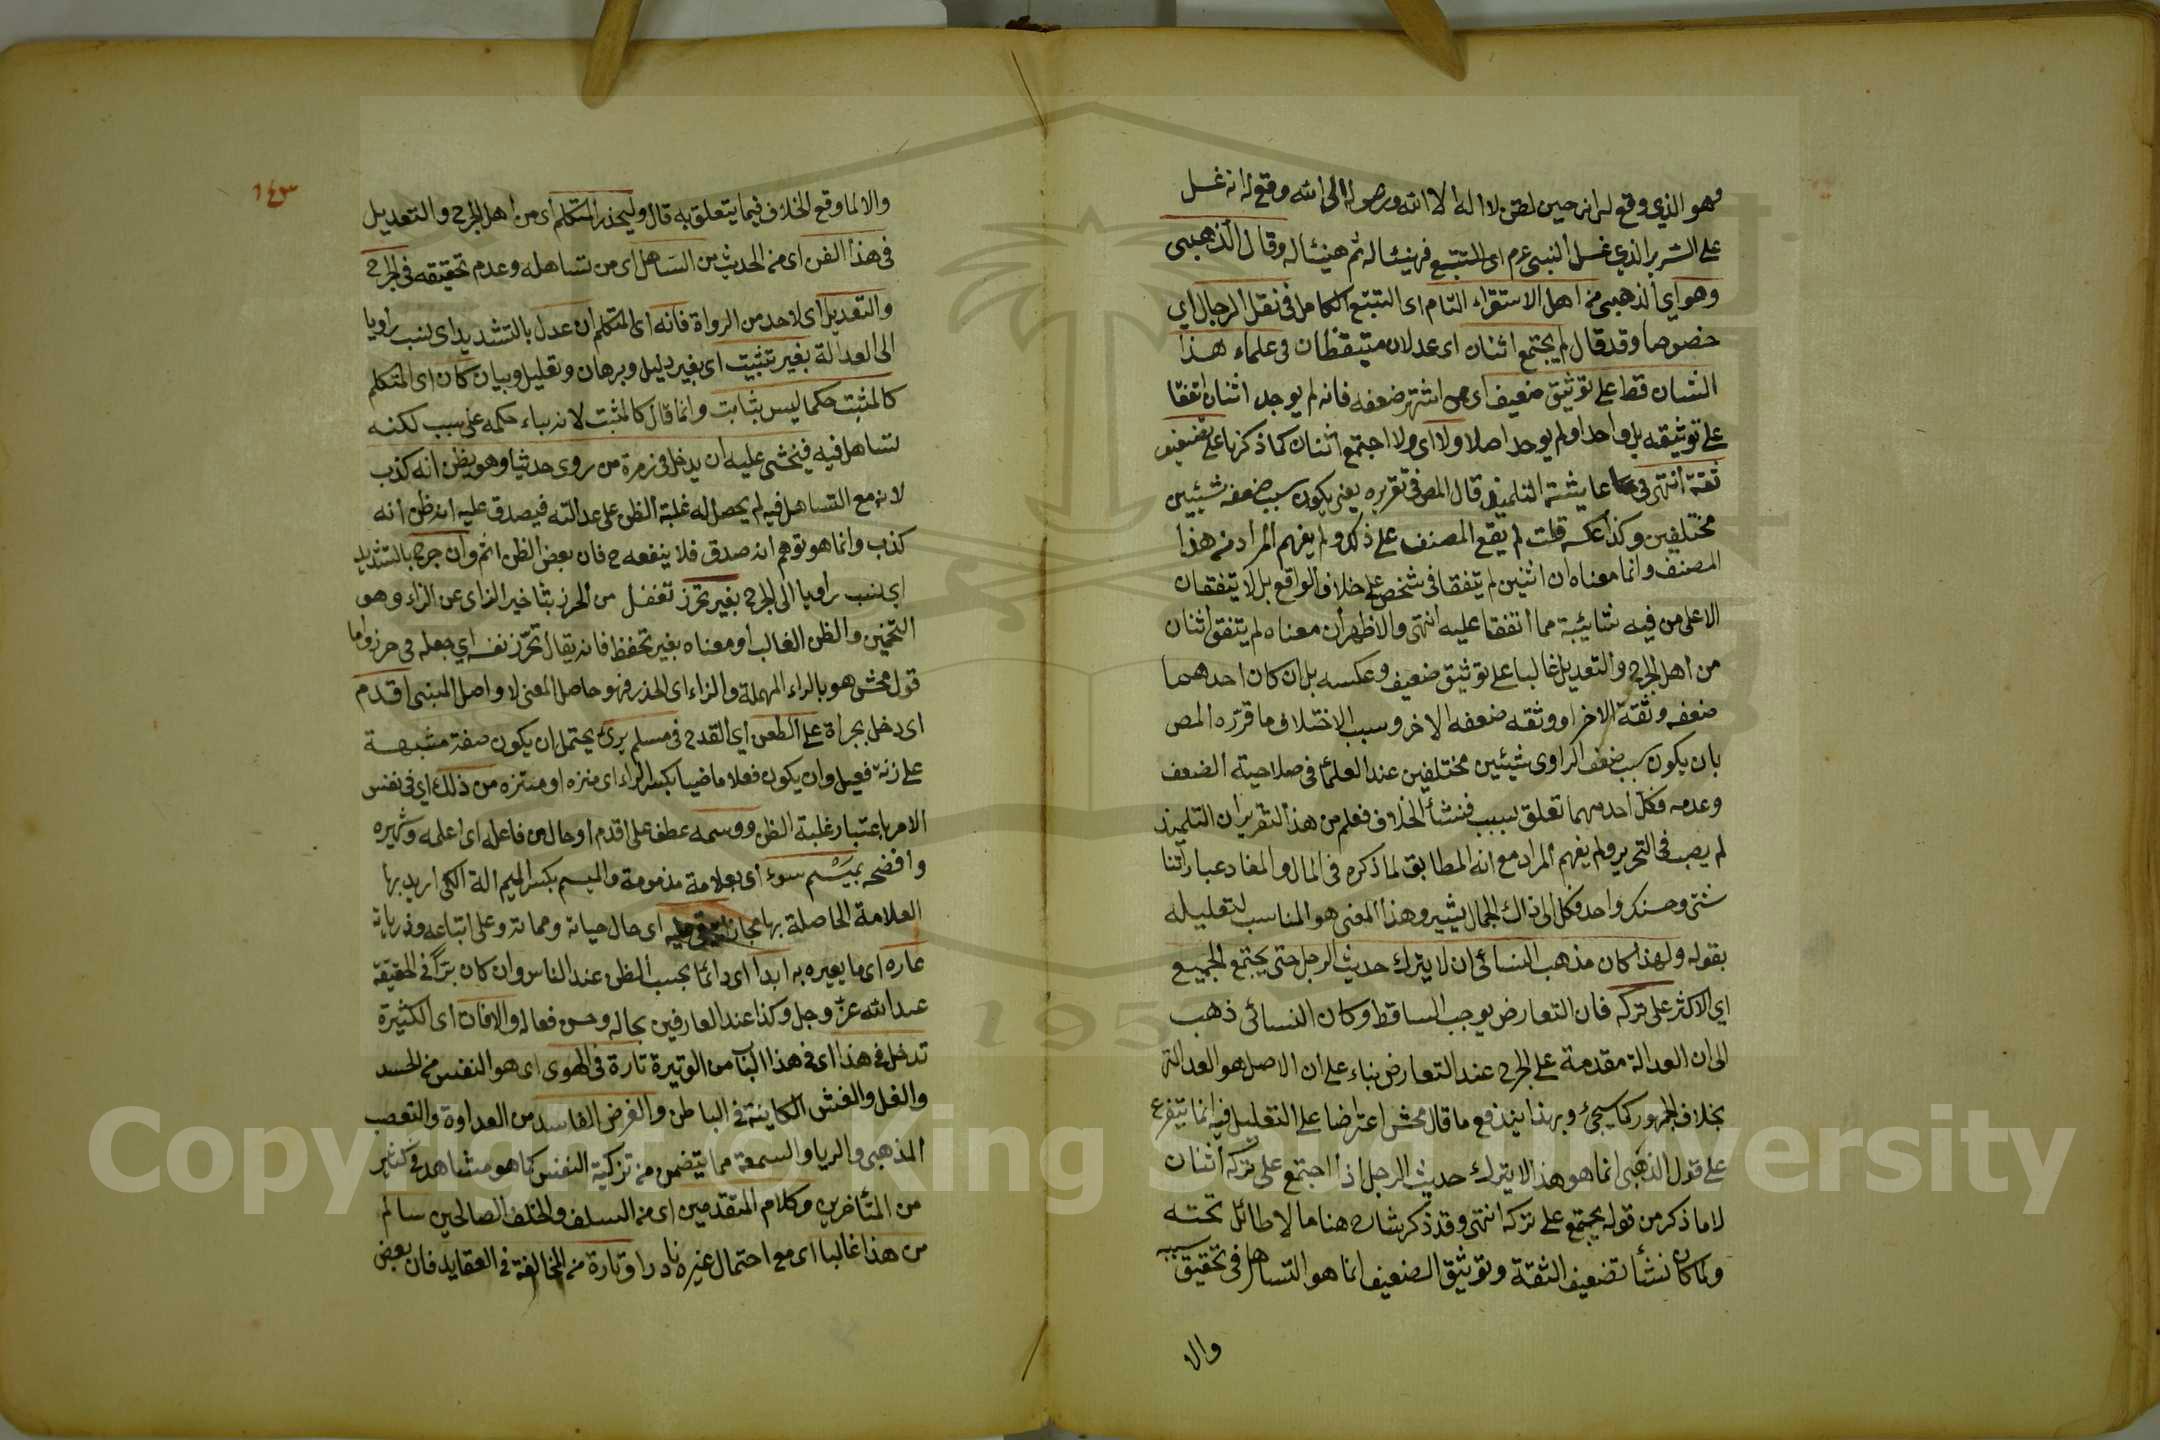 وهو الذي وقع له انه حين نطق لا اله الا الله ورصوله الى الله وقع له انه غسل
على السرير الذي غسل النبي عم اى التتبع فهنيئا له ثم هنيئا له وقال الذهبى
وهو اي الذهبى من اهل الاستقراء التام اى التتبع الكامل فى نقل الرجال اي
خصوصا وقد قال لم يجتمع اثنان اى عدلان متيقظان فى علماء هذا
الشان قط على توثيق ضعيف اى من اشتهر ضعفه فانه لم يوجد اثنان اتفقا
على توثيقه بل واحد او لم يوجد اصلا ولا اى ولا اجتمع اثنان كما ذكرنا على تضعيف
ثقة انتهى فى حاشية التلميذ قال المص فى تقريره يعنى يكون سبب ضعفه شيئين
مختلفين وكذا عكسه قلت لم يقع المصنف على ذلك ولم يفهم المراد من هذا
المصنف وانما معناه ان اثنين لم يتفقا فى شخص على خلاف الواقع بل لا يتفقان
الا على من فيه شائبة مما اتفقا عليه انتهى والاظهر ان معناه لم يتفق اثنان
من اهل الجرح والتعديل غالبا على توثيق ضعيف وعكسه بل ان كان احدهما
ضعفه وثقه الاخر او وثقه ضعفه الاخر وسبب الاختلاف ما قرره المص
بان يكون سبب ضعف الراوى شيئين مختلفين عند العلما فى صلاحية الضعف
وعدمه فكل احد منهما تعلق بسبب فنشأ الخلاف فعلم من هذا التقرير ان التلميذ
لم يصب فى التحرير ولم يفهم المراد مع انه المطابق لما ذكره فى المال والمفاد عباراتنا
شتى وحسنك واحد فكل الى ذاك الجمال يشير وهذا المعنى هو المناسب لتعليله
بقوله ولهذا كان مذهب النسائى ان لا يترك حديث الرجل حتى يجتمع الجميع
اي الاكثر على تركه فان التعارض يوجب التساقط وكان النسائى ذهب
الى ان العدالة مقدمة على الجرح عند التعارض بناء على ان الاصل هو العدالة
بخلاف الجمهور كما سيجئ وبهذا يندفع ما قال محش اعتراضا على التعليل فيه انما يتفرع
على قول الذهبى انما هو هذا لا يترك حديث الرجل اذا اجتمع على تركه اثنان
لا ما ذكر من قوله يجتمع على تركه انتهى وقد ذكر شارح هنا ما لا طائل تحته
ولما كان نشأ تضعيف الثقة وتوثيق الضعيف انما هو التساهل فى تحقيق سببه
والا
١٤٣
والا لما وقع الخلاف فيما يتعلق به قال وليحذر المتكلم اى من اهل الجرح والتعديل
فى هذا الفن اى من الحديث من التساهل اى من تساهله وعدم تحقيقه فى الجرح
والتعديل اى لاحد من الرواة فانه اى المتكلم ان عدل بالتشديد اى لنسب راويا
الى العدالة بغير تثبيت اى بغير دليل وبرهان وتعليل وبيان كان اى المتكلم
كالمثبت حكما ليس بثابت وانما قال كالمثبت لانه بناء حكمه على سبب لكنه
تساهل فيه فيخشى عليه ان يدخل فى زمرة من روى حديثا وهو يظن انه كذب
لانه مع التساهل فيه لم يحصل له غلبة الظن على عدالته فيصدق عليه انه ظن انه
كذب وانما هو توهم انه صدق فلا ينفعه ح فان بعض الظن اثم وان جرح بالتشديد
اى نسب راويا الى الجرح بغير تحرز تفعل من الحرز بتاخير الزاى عن الراء وهو
التخمين والظن الغالب او معناه بغير تحفظ فانه يقال تحرز نفسه اي جعله فى حرز واما
قول محش هو بالراء المهملة والزاء اى الحذر فهو حاصل المعنى لا واصل المبنى اقدم
اى دخل بجراة على الطعن اي القدح فى مسلم برئ يحتمل ان يكون صفة مشبهة
على زنة فعيل وان يكون فعلا ماضيا بكسر الراء اى منزه او متنزه من ذلك اي فى نفس
الامر باعتبار غلبة الظن ووسمه عطف على اقدم او حال من فاعله اى اعلمه وشهره
وافضحه بميسم سوء اى بعلامة مذمومة والميسم بكسر الميم الة الكى اريد بها
العلامة الحاصلة بها مجازا يبقى عليه اى حال حياته ومماته وعلى اتباعه وذرياته
عاره اى ما يعيره به ابدا اى دائما بحسب الظن عند الناس وان كان برّا فى الحقيقة
عند الله عز وجل وكذا عند العارفين بحاله وحسن فعاله والافات اى الكثيرة
تدخل فى هذا اى فى هذا الباب من الوتيرة تارة فى الهوى اى هو النفس من الحسد
والغل والغش الكاينة فى الباطن والغرض الفاسد من العداوة والتعصب
المذهبى والريا والسمعة مما يتضمن من تزكية النفس كما هو مشاهد فى كثير
من المتأخرين وكلام المتقدمين اى من السلف والخلف الصالحين سالم
من هذا غالبا اى مع احتمال غيره نادرا وتارة من المخالفة فى العقايد فان بعض